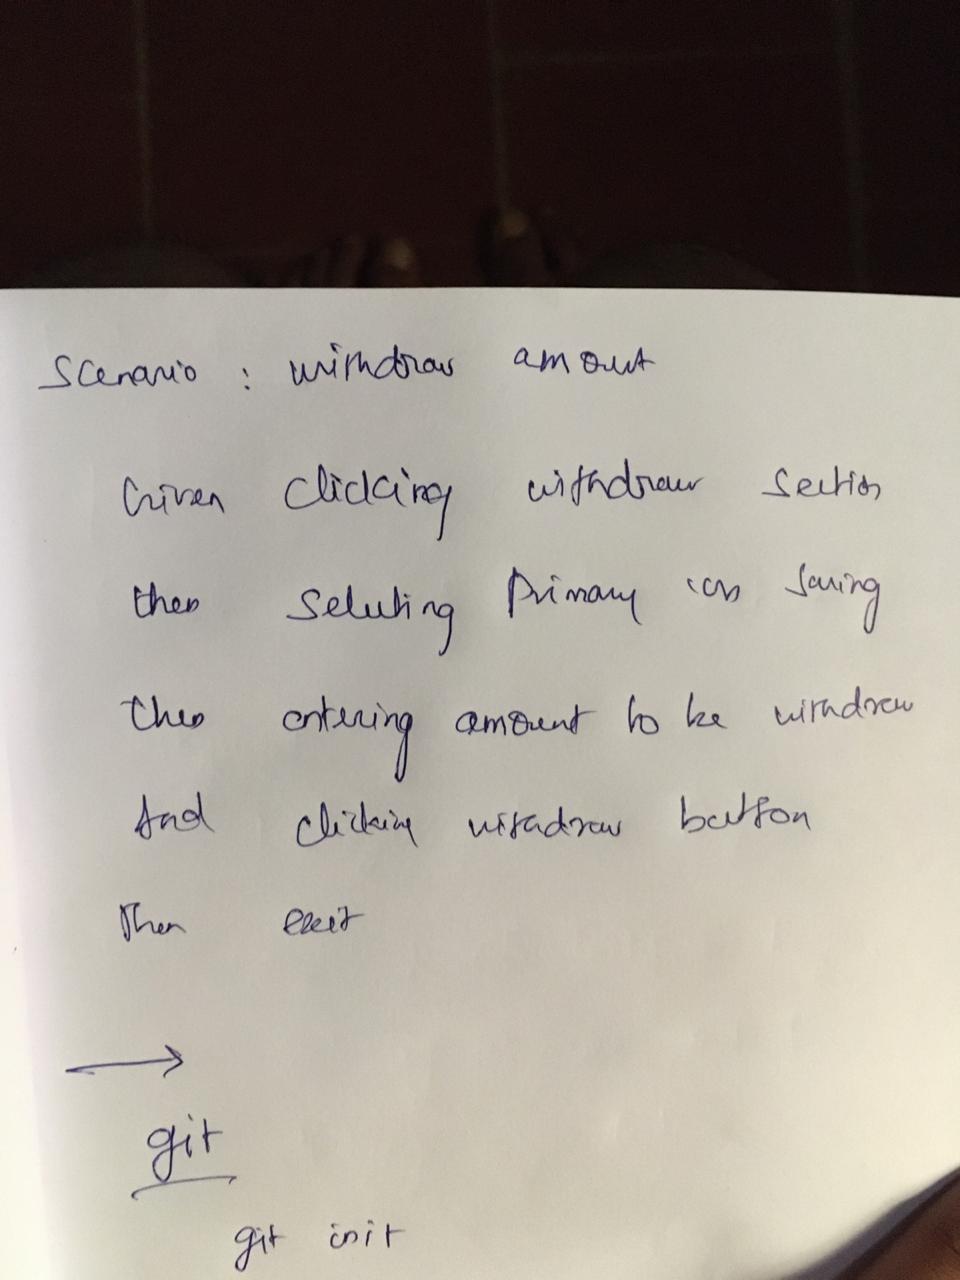 Scenario : withdraw amout
Given clicking withdraw section
then selecting Primary (or) saving
then entering amount to be withdrew
And clicking withdraw button
Then exit
→
git
git init